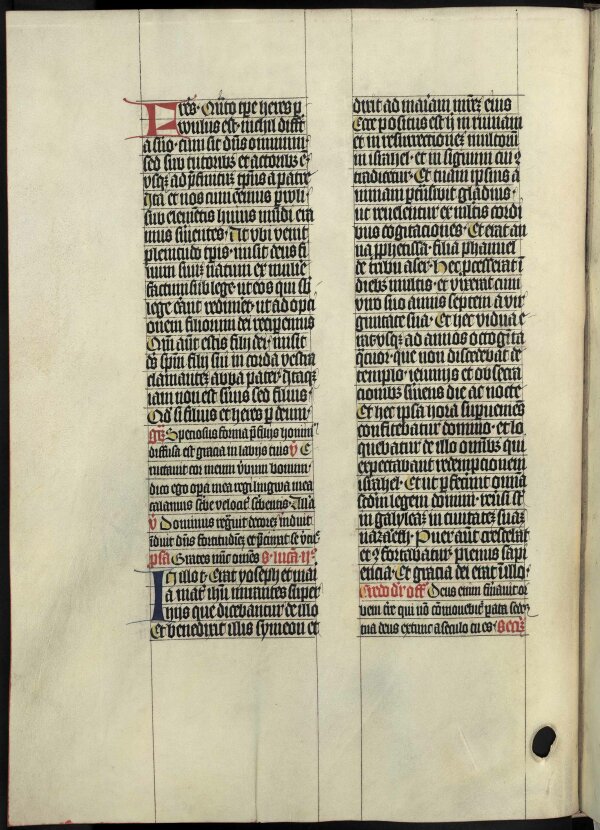 Fr̄es· Qn̄to tp̄e heres p
vulus est· nichil differt
a s̄uo· cum sit dn̄s omnium
sed sub tutoribus et actoribus ē·
vsq̄ ad p̄finitū tp̄us a patre
Ita et nos cum eēmus p̄vuli·
sub elementis huius mūdi era
mus s̄uientes· At vbi venit
plenitudo tp̄is· misit deus fi
lium suū natum ex mulie
factum sub lege· ut eos qui sb̄
lege erānt redimēt· ut adopti
onem filiorum dei reciperemus
Qm̄ aūt estis filij dei· misit
ds̄ sp̄m filij sui in corda vestra
clamantem abba pater· Itaqꝫ
iam non est s̄uus sed filius·
Qd̄ si filius et heres per deum·
gr̄ Speciosus forma p̄ filijs hominū
diffusa est gracia in labijs tuis v̄ E
ructauit cor meum v̄bum bonum·
dico ego opera mea regi lingwa mea
calamus scribe velocit̄ scribentis· Alla
v̄ Dominus regnauit decorē induit
īduit dn̄s fortitudinē et p̄cinxit se v̄tute
p̄sa Grates nūc om̄es s· lucā ijº
In illo t̄· Erat yoseph et mari
a mat̄ ihū mirantes super
hijs que dicebantur de illo
Et benedixit illis symeon et
dixit ad mariam mr̄em eius
Ecce positus est h̄ in ruinam
et in resurrectionem multorū
in israhel· et in signum cui 9
tradicetur· Et tuam ipsius a
nimam p̄transibit gladius·
ut reuelentur ex multis cordi
bus cogitaciones· Et erat an
na pphetissa· filia phanuel
de tribu aser· Hec processerat ī
diebꝫ multis· et vixerat cum
viro suo annis septem a vir
ginitate sua· Et hec vidua e
rat vsqꝫ ad annos octoginta
q̄tuor· que non discedebat de
templo· ieiunijs et obsecra
cionibus s̄uiens die ac nocte
Et hec ipsa hora supueniens
confitebatur domino· et lo
quebatur de illo omībus qui
expectabant redempcionem
israhel· Et ut p̄fecerunt omnia
sc̄dm legem domini· reu̇si sūt
in galyleam in ciuitatē suam
nazareth· Puer aūt crescebat
et 9fortabatur· plenus sapi
encia· Et gracia dei erat ī illo·
Credo dr̄ off̄ Deus enim firmauit or
bem t̄re qui nō cōmouebitur parata sedes
tua deus extunc a seculo tu es· Secr̄